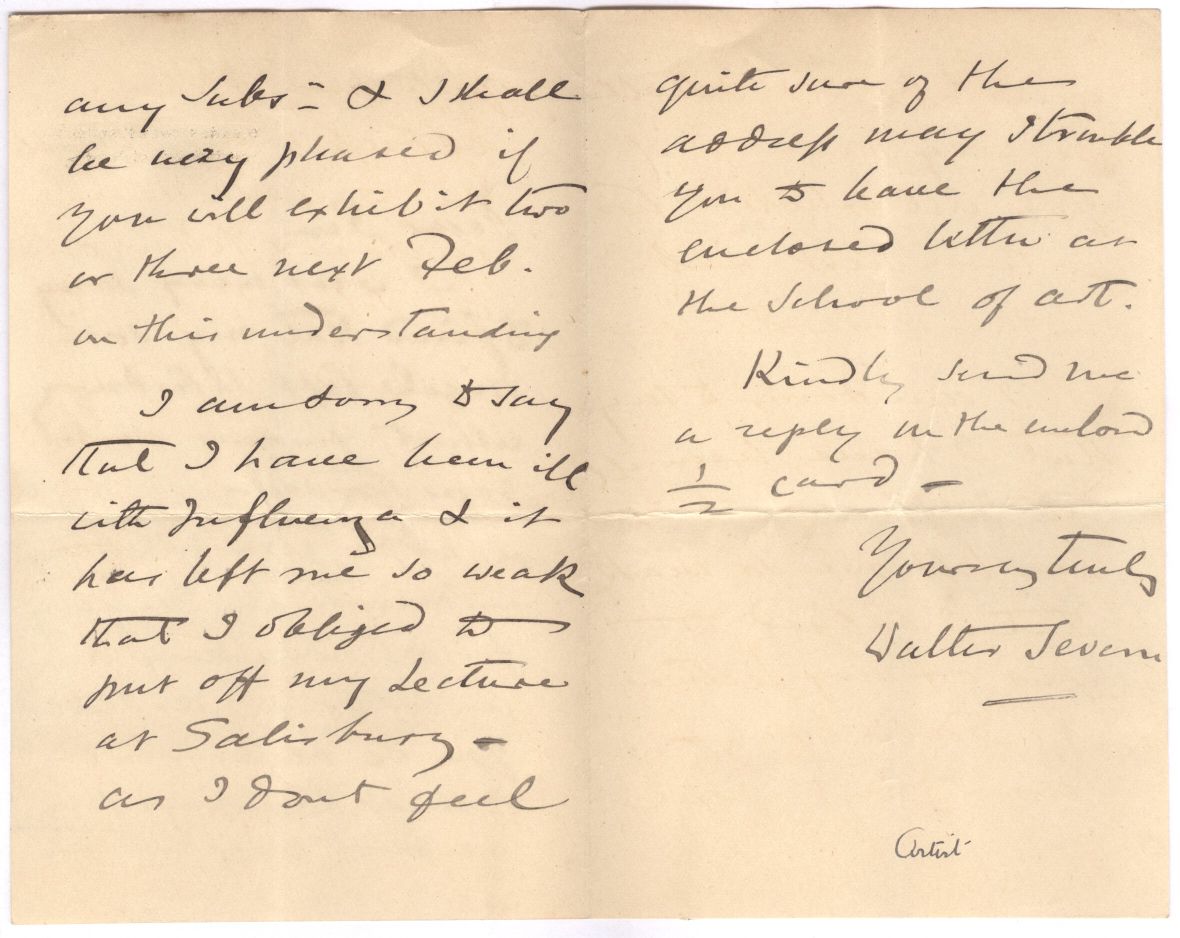 any Subs= & I shall
be very pleased if
you will exhibit two
or three next Feb.
on this understanding
I am sorry to say
that I have been ill
with Influenza & it
has left me so weak
that I obliged to
put off my Lecture
at Salisbury -
as I dont feel
quite sure of the
address may I trouble
you to have the
enclosed letter at
the School of art.
Kindly send me
a reply on the enclosed
1/2 card -
Yours very truly
Walter Severn
Artist